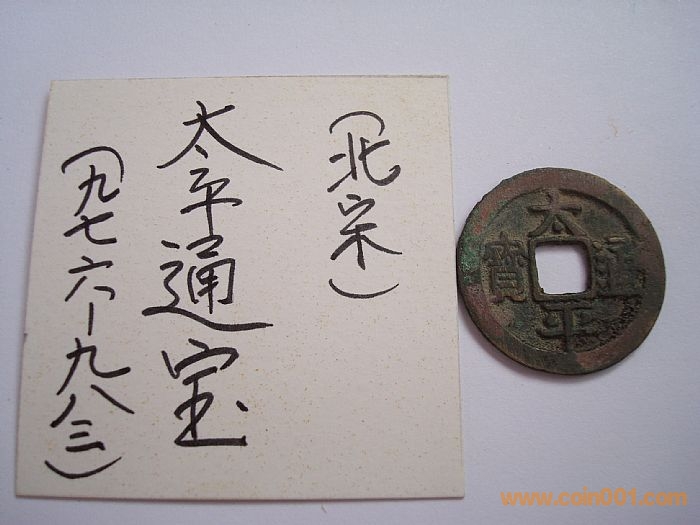 (北宋)
太平通宝
(九七六-九八三)
太平通寳
www.coin001.com